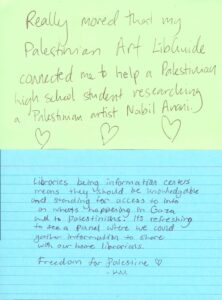 Really moved that my
Palestinian Art LibGuide
connected me to help a Palestinian
high school student researching
a Palestinian artist Nabil Anani.
Libraries being information centers
means they should be knowledgable
and standing for access to info
on whats happening in Gaza
and to Palestinians. It's refreshing
to see a panel where we could
gather information to share
with our home libraries.
Freedom for Palestine